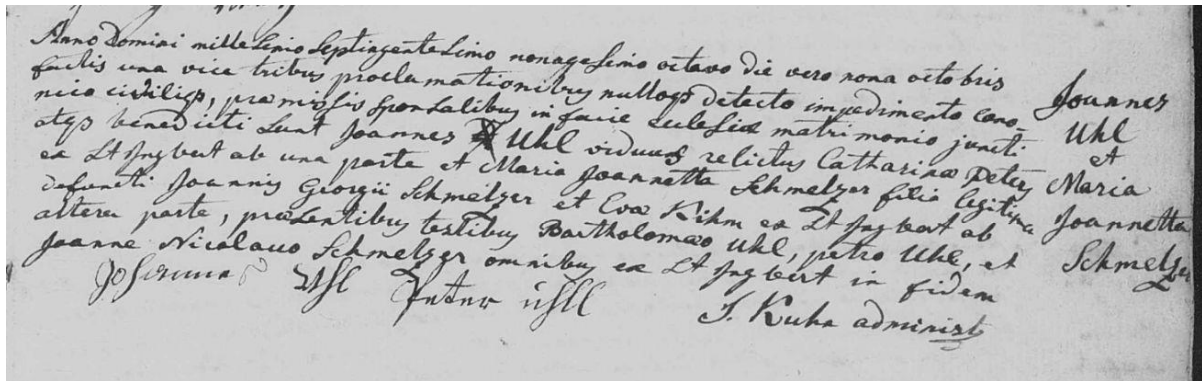 Anno Domini millesimo septingentesimo nonagesimo octavo die vero nona octobris
factis una vice tribus proclamationibus nulloqs detecto impedimento cano-
nico civiliqs, praemissis sponsalibus in facie ecclesiae matrimonio juncti
atqs benedicti sunt Joannes Uhl viduus relictus Catharinae Peters
ex St Ingbert ab una parte et Maria Joannetta Schmelzer filia legitima
defuncti Joannis Georgii Schmelzer et Evae Kihm ex St Ingbert ab
altera parte, praesentibus testibus Bartholomaeo Uhl, petro Uhl, et
Joanne Nicolauo Schmelzer omnibus ex St Ingbert in fidem
Johannes Uhl Peter Uhll
J. Kuhn administ
Joannes
Uhl
et
Maria
Joannetta
Schmelzer